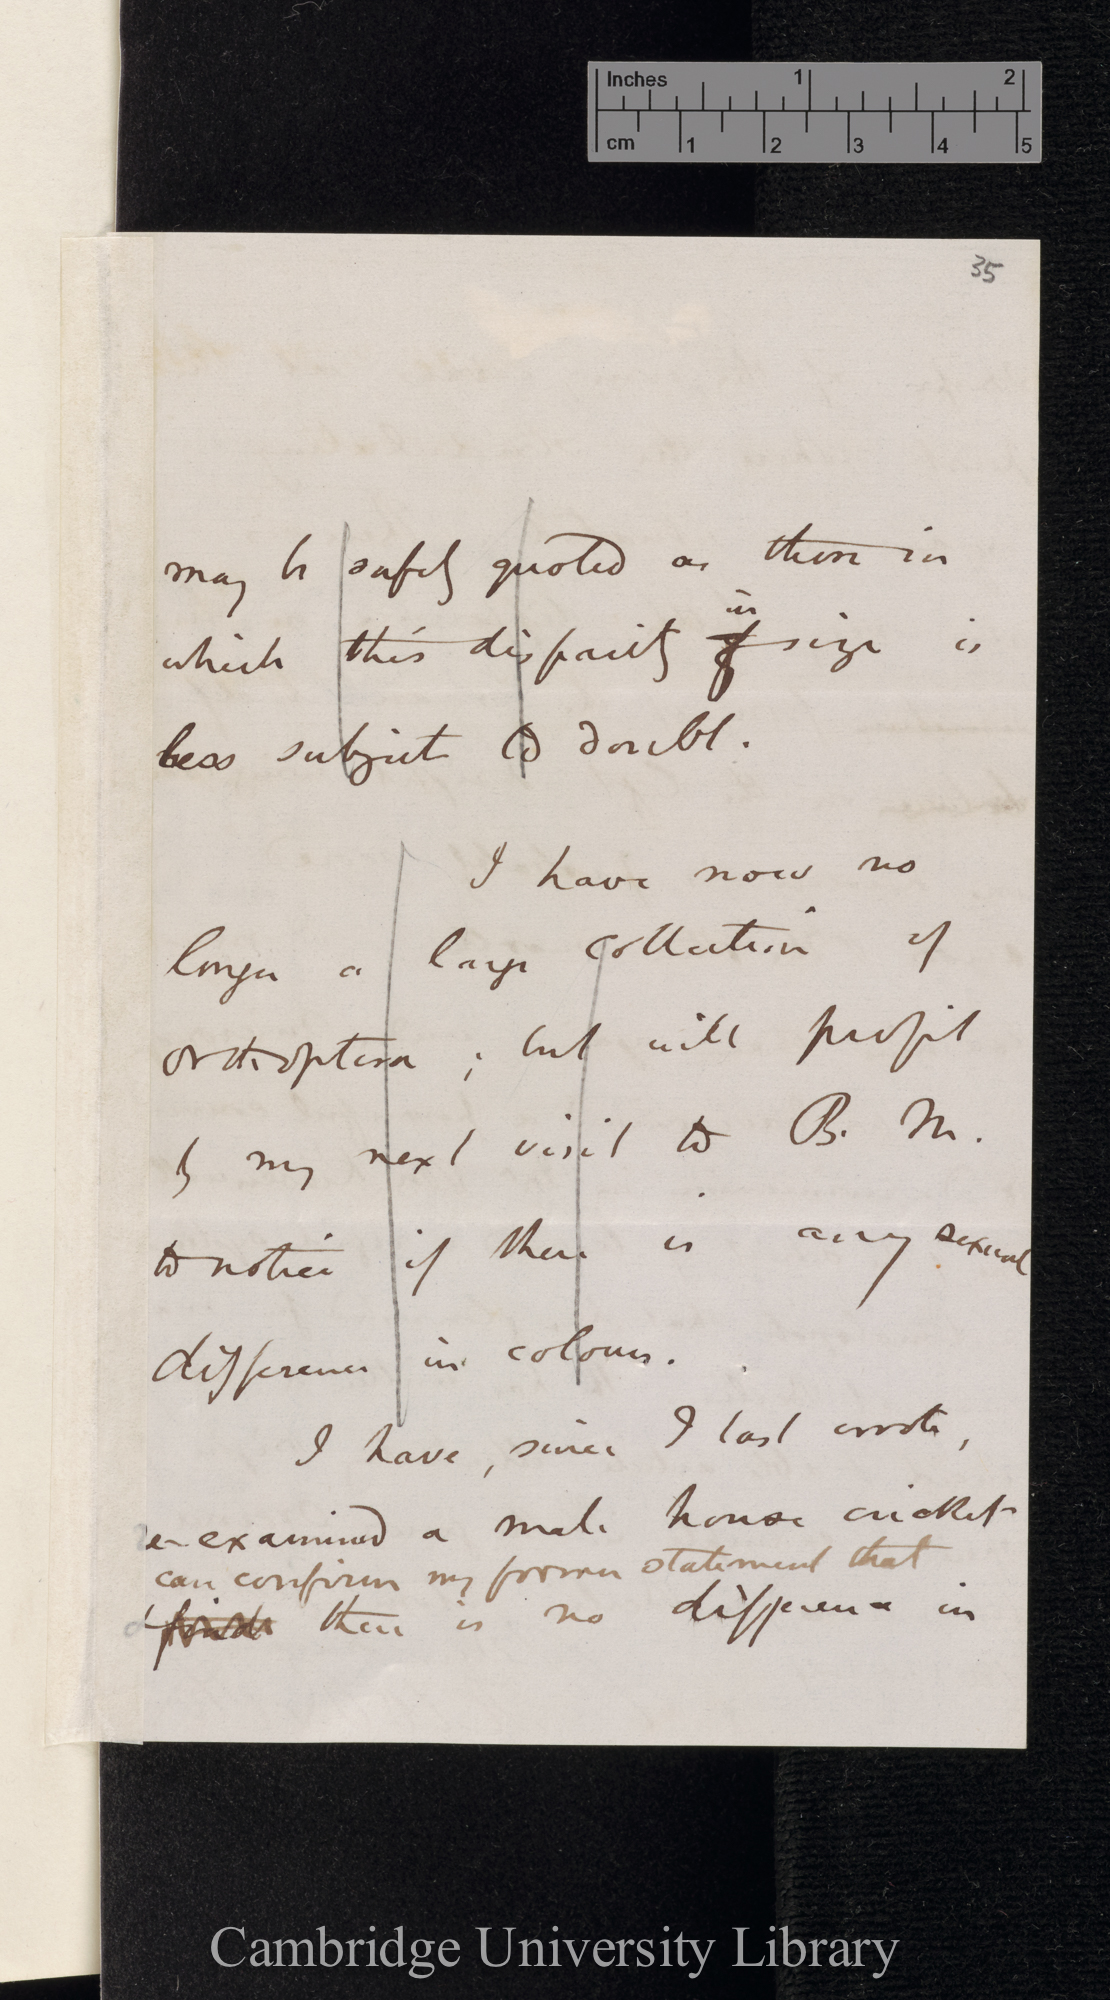 Inches 1 2
cm 1 2 3 4 5
35
may be safely quoted as those in
in
which this disparity of size is
less subject to doubt.
I have now no
longer a large collection of
orthoptera; but will profit
by my next visit to B. M.
to notice if there is any sexual
difference in colours.
I have, since I last wrote,
re-examined a male house cricket
can confirm my former statement that
find there is no difference in
Cambridge University Library